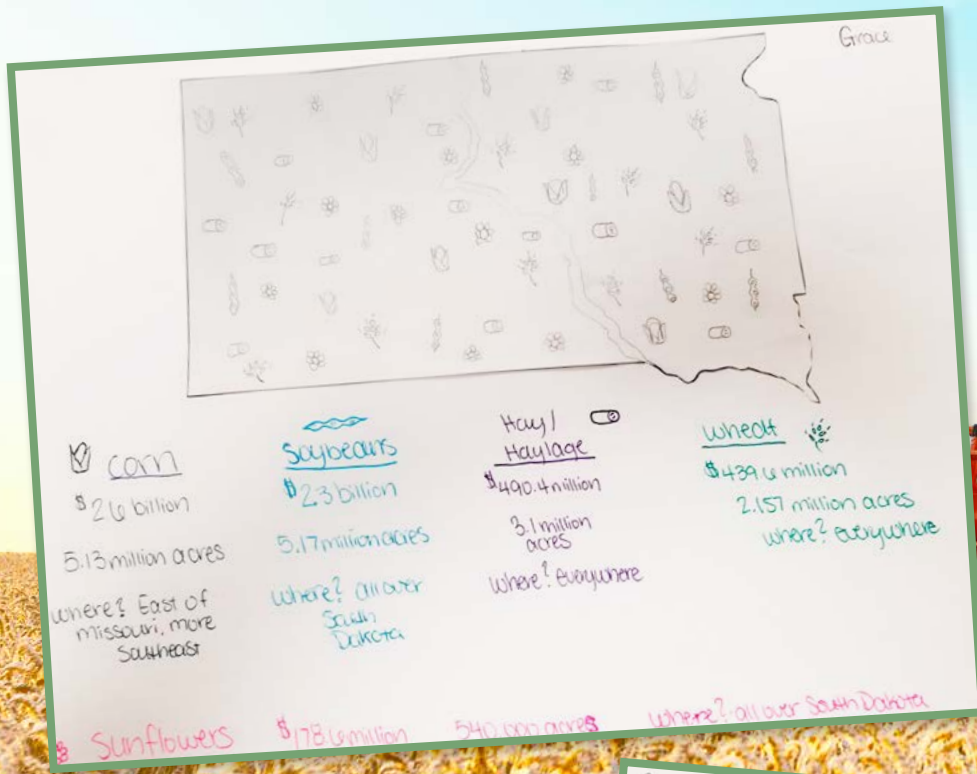 Grace
corn
$2.6 billion
5.13 million acres
where? East of
missouri, more
Southeast
Soybeans
$2.3 billion
5.17 million acres
where? all over
South
Dakota
Hay/
Haylage
$490.4 million
3.1 million
acres
where? everywhere
wheat
$439.6 million
2.157 million acres
where? everywhere
Sunflowers $178.6 million 540,000 acres where? all over South Dakota